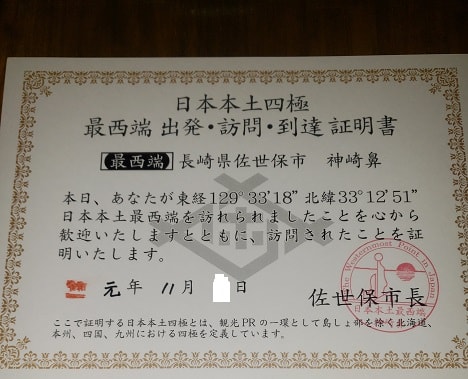 日本本土四極
最西端 出発・訪問・到達 証明書
【最西端】長崎県佐世保市　神崎鼻
本日、あなたが東経129°33'18"北緯33°12'51"
日本本土最西端を訪れられましたことを心から
歓迎いたしますとともに、訪問されたことを証
明いたします。
元年 11月 日
佐世保市長
The Westernmost Point in Japan
日本本土最西端
ここで証明する日本本土四極とは、観光PRの一環として島しょ部を除く北海道、
本州、四国、九州における四極を定義しています。